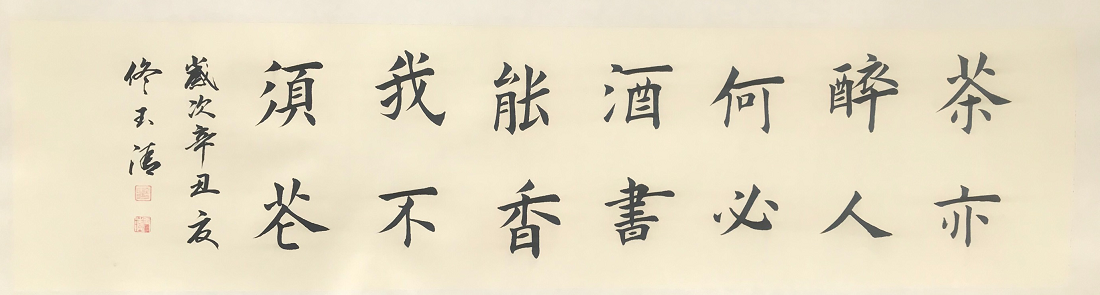 茶亦
醉人
何必
酒書
能香
我不
須花
歲次辛丑夏
佟玉清